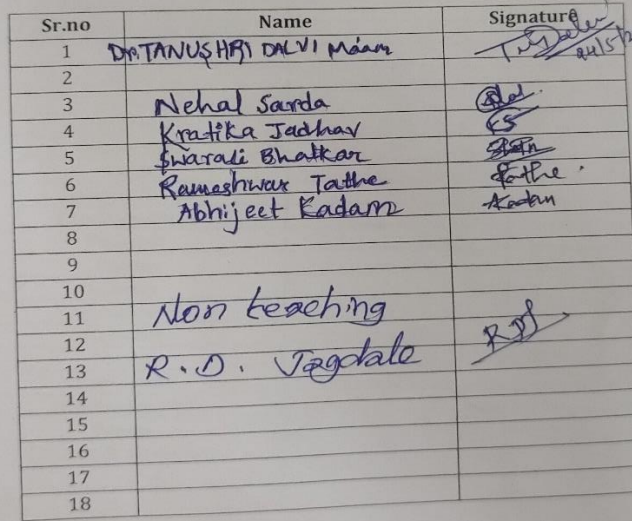 Sr.no Name Signature
1 Dr. TANUSHRI DALVI Máam 24/5/
2
3 Nehal Sarda
4 Kratika Jadhav KJ
5 Swarali Bhatkar
6 Rameshwar Tathe Rathe.
7 Abhijeet Kadam Kadam
8
9
10
11 Non teaching
12
13 R. D. Jagdale RDJ
14
15
16
17
18